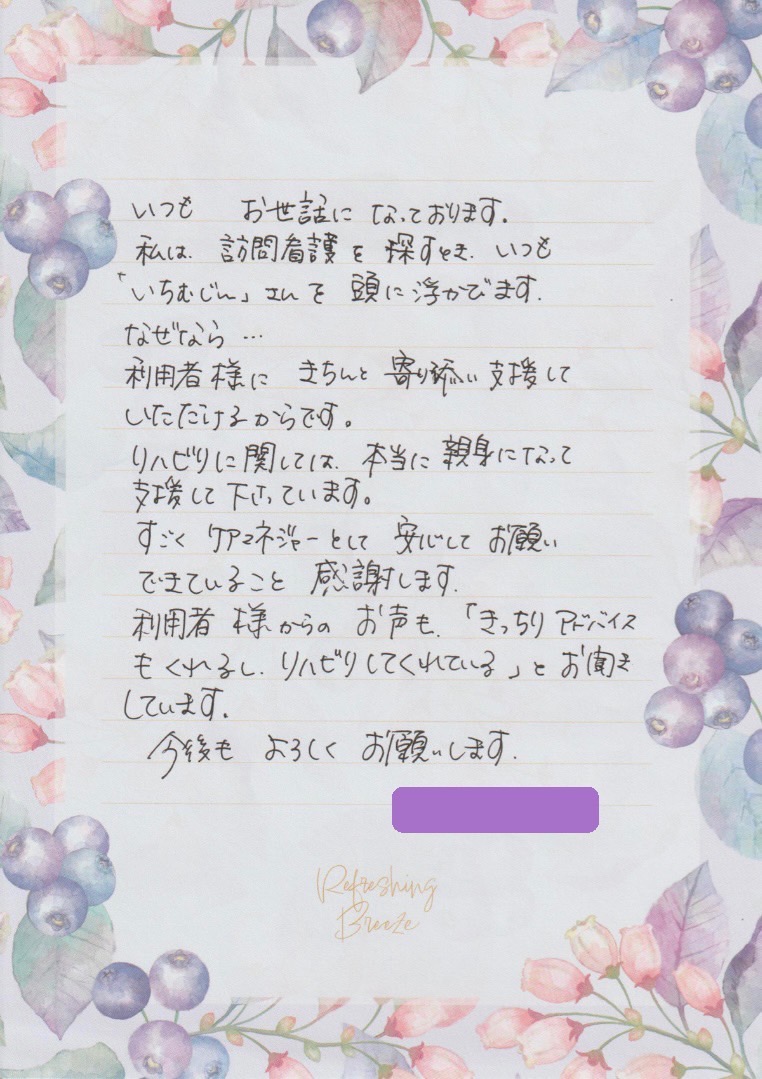 いつも お世話に なっております。
私は、訪問看護を 探すとき、いつも
「いちむじん」さんを 頭に浮かびます。
なぜなら…
利用者様に きちんと 寄り添い支援して
いただけるからです。
リハビリに関しては、本当に親身になって
支援して下さっています。
すごく ケアマネジャーとして 安心して お願い
できていること 感謝します。
利用者 様からの お声も、「きっちり アドバイス
もくれるし、リハビリしてくれている」と お聞き
しています。
今後も よろしく お願いします。
Refreshing
Breeze